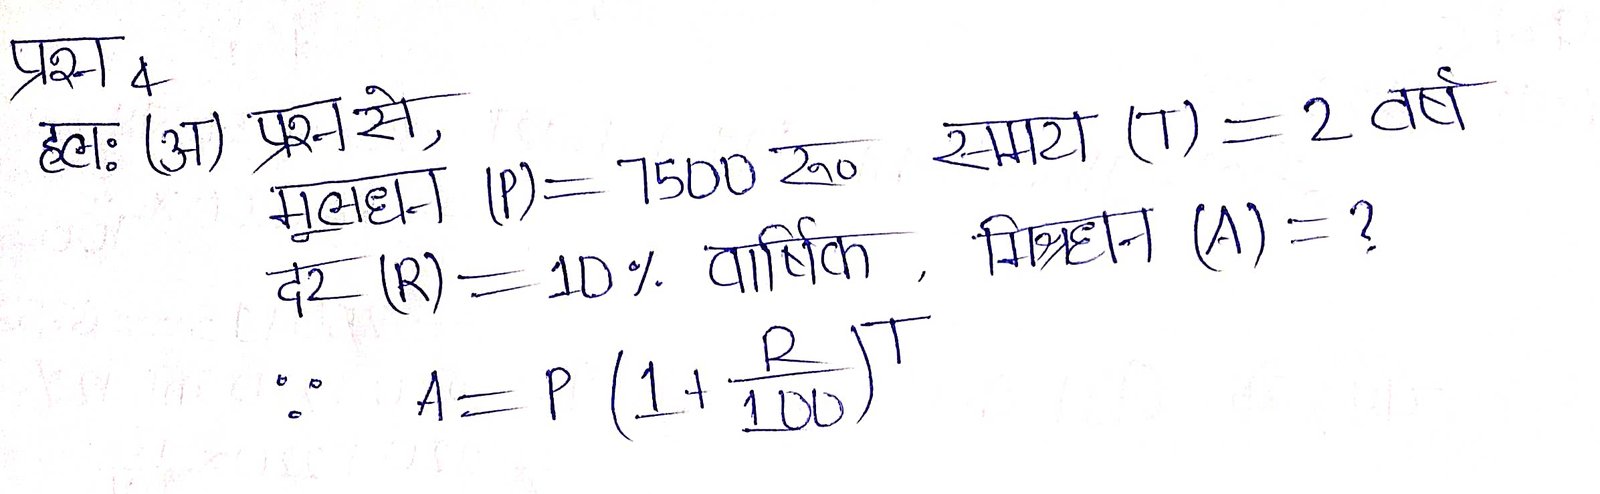 प्रश्न 4
हलः (अ) प्रश्न से,
मूलधन (P) = 7500 रू० समय (T) = 2 वर्ष
दर (R) = 10% वार्षिक, मिश्रधन (A) = ?
∵ A = P (1 + R/100)^T